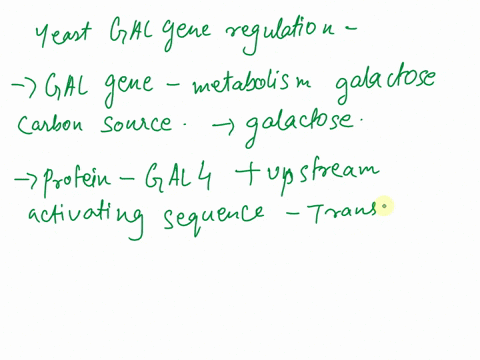 Yeast GAL gene regulation -
→ GAL gene - metabolism galactose
carbon source. → galactose.
→ Protein - GAL 4 + upstream
activating sequence - Trans